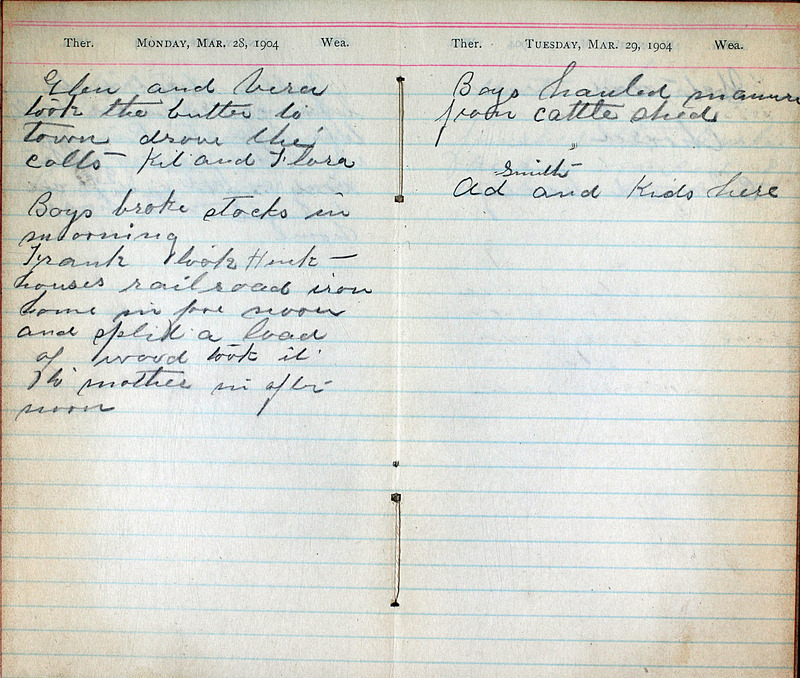 Ther. MONDAY, MAR. 28, 1904 Wea.
Glen and Vera
took the butter to
town drove the
colts Kit and Flora
Boys broke stocks in
morning
Frank took Henk-
houses railroad iron
home in fore noon
and split a load
of wood took it
to mother in after
noon
Ther. TUESDAY, MAR. 29, 1904 Wea.
Boys hauled manure
from cattle shed
Smith
Ad and Kids here